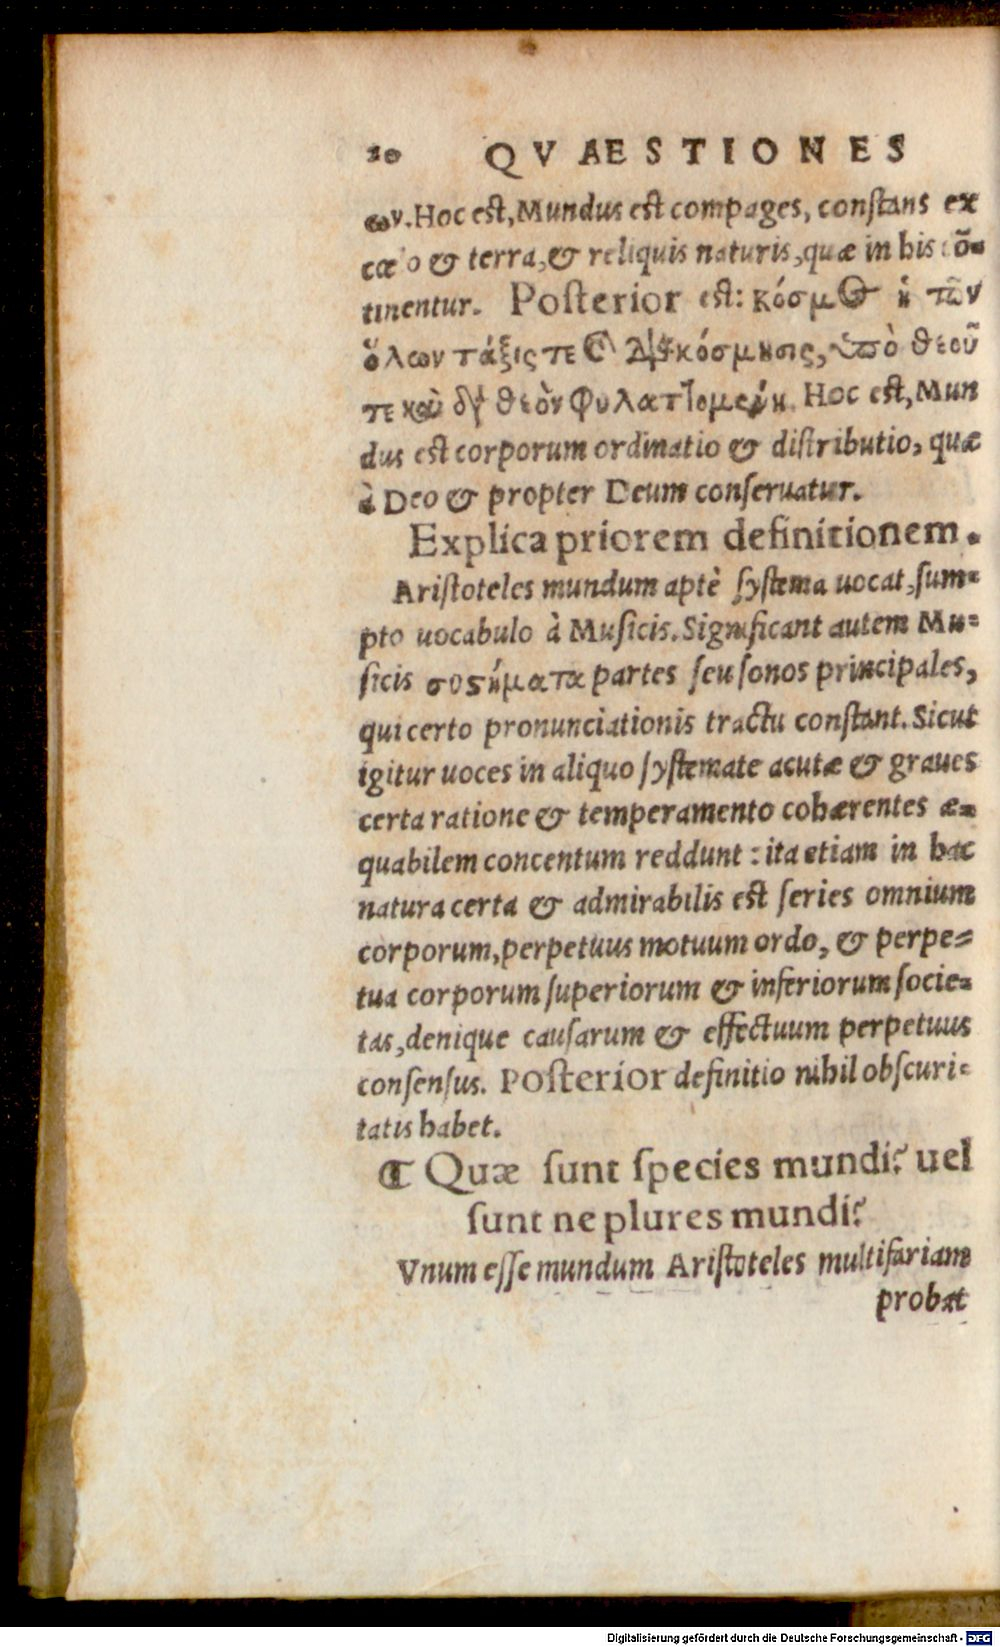 20 QVAESTIONES
ων. Hoc est, Mundus est compages, constans ex
cœlo & terra, & reliquis naturis, quæ in his cõ-
tinentur. Posterior est: κόσμος ἡ τῶν
ὅλων τάξις τε καὶ διακόσμησις, ὑπὸ θεοῦ
τε καὶ διὰ θεὸν φυλαττομένη. Hoc est, Mun
dus est corporum ordinatio & distributio, quæ
à Deo & propter Deum conseruatur.
Explica priorem definitionem.
Aristoteles mundum aptè systema uocat, sum-
pto uocabulo à Musicis. Significant autem Mu-
sicis συστήματα partes seu sonos principales,
qui certo pronunciationis tractu constant. Sicut
igitur uoces in aliquo systemate acutæ & graues
certa ratione & temperamento cohærentes æ-
quabilem concentum reddunt: ita etiam in hac
natura certa & admirabilis est series omnium
corporum, perpetuus motuum ordo, & perpe-
tua corporum superiorum & inferiorum socie-
tas, denique causarum & effectuum perpetuus
consensus. Posterior definitio nihil obscuri-
tatis habet.
¶ Quæ sunt species mundi? uel
sunt ne plures mundi?
Vnum esse mundum Aristoteles multifariam
probat
Digitalisierung gefördert durch die Deutsche Forschungsgemeinschaft - DFG